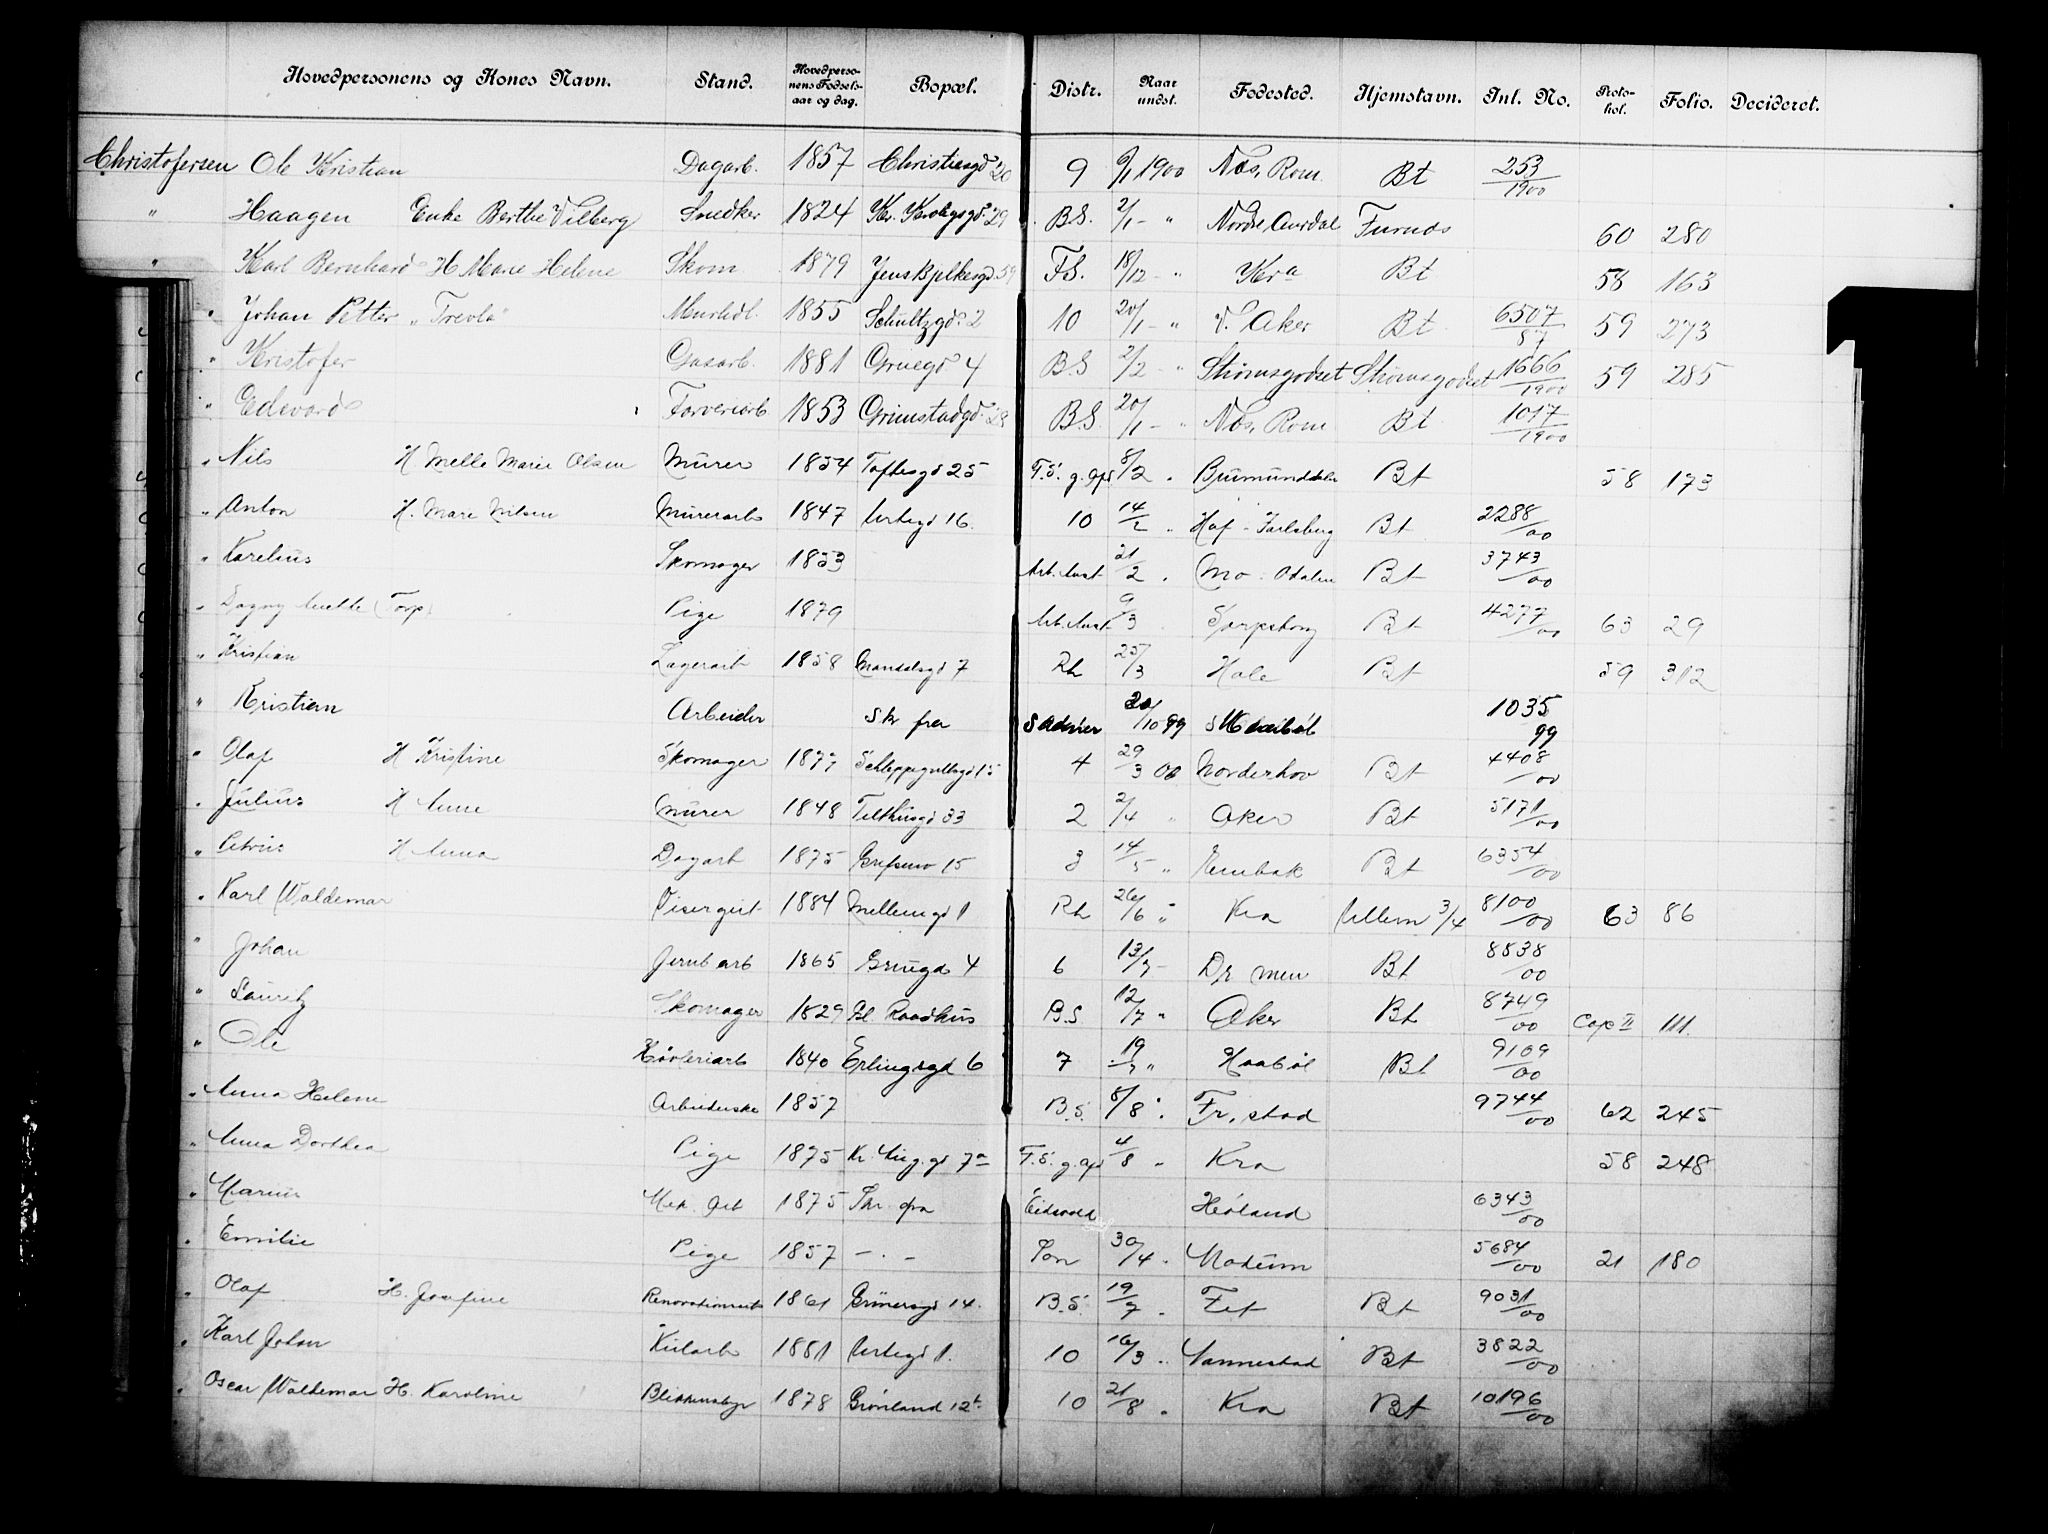 Hovedpersonens og Kones Navn. Stand. Hovedperso-nens Fødsels-aar og dag. Bopæl. Distr. Naar undst. Fødested. Hjemstavn. Int. No. Proto-kol. Folio. Decideret.
Christofersen Ole Kristian Dagarb. 1857 Christiesgd 20 9 9/1 1900 Næs, Rom. Bt 253/1900
" Haagen Enke Berthe Vilberg Snedker 1824 Kr. Krohgsgd. 29 B.S. 2/1 - " Nordre Aurdal Furnæs 60 280
" Karl Bernhard H Marie Helene Skom 1879 Jens Bjelkesgd 59 F.S. 18/12 - " Kra Bt 58 163
" Johan Petter „Trevla" Murhdl. 1855 Schultzgd. 2 10 20/1 - " V. Aker Bt 6507/87 59 273
" Kristofer Gasarb. 1881 Gruegd 4 B.S 2/2 - " Strømsgodset Strømsgodset 1666/1900 59 285
" Edvard Farveriarb 1853 Grimstadgd. 28 B.S. 20/1 - " Næs, Rom Bt 1017/1900
" Nils H Melle Marie Olsen Murer 1854 Toftesgd 25 F.S. g. opd 8/2 " Brumunddalen Bt 58 173
" Anton H. Mare Nilsen Murerarb 1847 Urtegd 16. 10 14/2 " Hof - Jarlsberg Bt 2288/00
" Karelius Skomager 1853 Arb. Anst 21/2 " Mo - Odalen Bt 3743/00
" Dagny Mathilde (Torp) Pige 1879 Arb. Anst 9/3 Sarpsborg Bt 4277/00 63 29
" Kristian Lagerarb 1858 Mandalsgd 7 Rh 25/3 Hole Bt 59 312
" Kristian Arbeider Skr fra 20/10 99 1035 99
" Olaf H Kristine Skomager 1877 Schleppegrellsgd 15 4 29/3 00 Norderhov Bt 4408/00
" Julius H Anne Murer 1848 Telthusgd 33 2 2/4 " Aker Bt 5171/00
" Petrus H Anna Dagarb 1875 Grefsenv 15 3 14/5 " Enebak Bt 6354/00
" Karl Waldemar Visergut 1884 Mellemgd 1 Rh 26/6 " Kra Ullern 3/4 8100/00 63 86
" Johan Jernb arb 1865 Gruegd 4 6 13/7 - Dr men Bt 8538/00
" Lauritz Skomager 1829 Gl. Raadhus B.S. 12/7 " Aker Bt 8749/00 Cop II 111.
" Ole Høvleriarb 1840 Erlingsgd 6 7 19/7 " Haabøl Bt 9109/00
" Anna Helene Arbeiderske 1857 B.S. 8/8 " Fr. stad 9744/00 62 245
" Anna Dorthea Pige 1875 Kr. Aug. gd 7a F.S. g. opd 4/8 " Kra 58 248
" Marius Mek. Arb 1875 Skr. fra Eidsvold Høland 6343/00
" Emilie Pige 1857 - " - Son 30/4 " Modum 5684/00 21 180
" Olaf H. Josefine Renovationsarb 1861 Grünersgd 14. B.S. 19/7 " Fet Bt 9031/00
" Karl Johan Kularb 1881 Urtegd 1. 10 16/3 " Nannestad Bt 3822/00
" Oscar Waldemar H. Karoline Blikkenslager 1878 Grønland 12b 10 21/8 " Kra Bt 10196/00